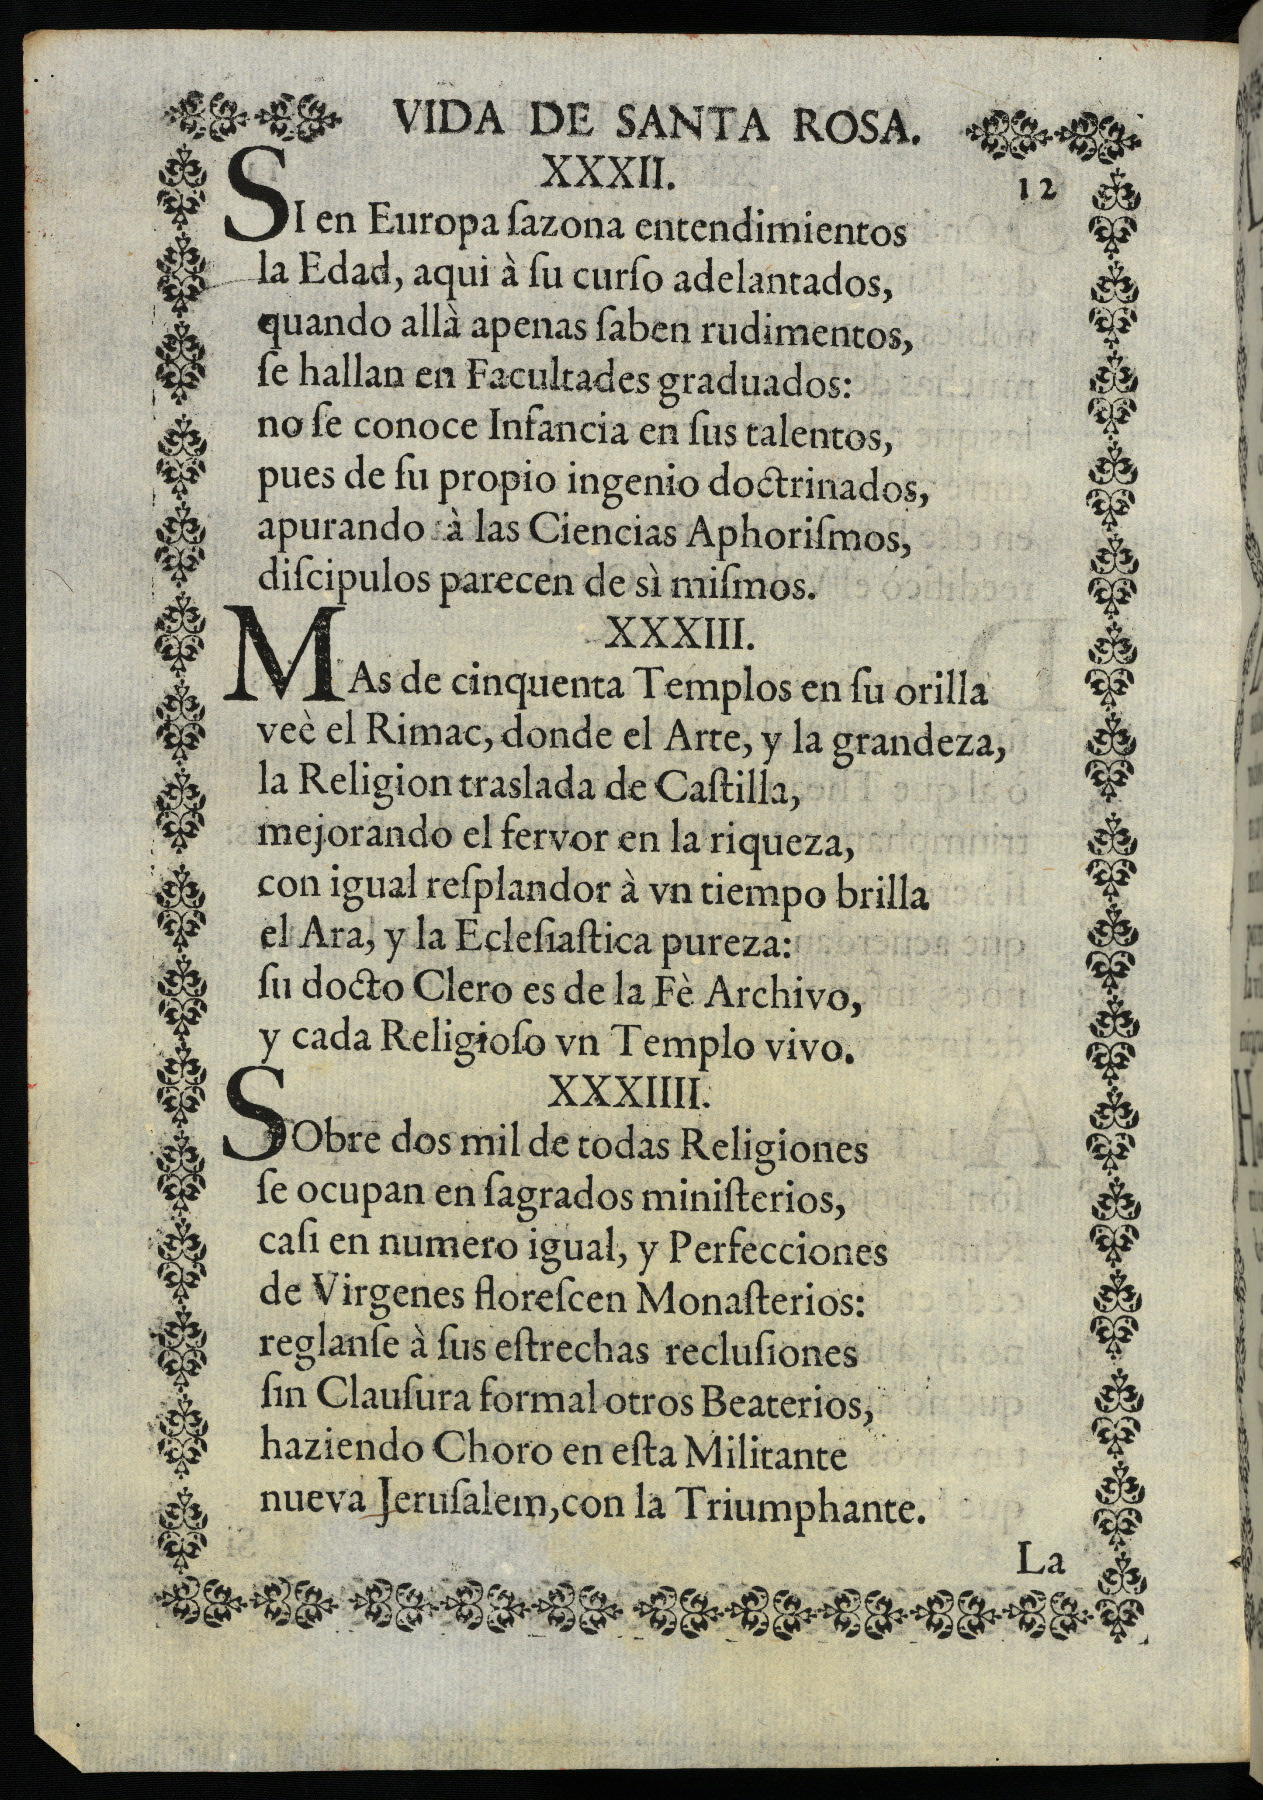 VIDA DE SANTA ROSA.
XXXII.
12
SI en Europa ſazona entendimientos
la Edad, aqui à ſu curſo adelantados,
quando allà apenas ſaben rudimentos,
ſe hallan en Facultades graduados:
no ſe conoce Infancia en ſus talentos,
pues de ſu propio ingenio doctrinados,
apurando à las Ciencias Aphoriſmos,
diſcipulos parecen de sì miſmos.
XXXIII.
MAs de cinquenta Templos en ſu orilla
veè el Rimac, donde el Arte, y la grandeza,
la Religion traslada de Caſtilla,
mejorando el fervor en la riqueza,
con igual reſplandor à vn tiempo brilla
el Ara, y la Ecleſiaſtica pureza:
ſu docto Clero es de la Fè Archivo,
y cada Religioſo vn Templo vivo.
XXXIIII.
SObre dos mil de todas Religiones
ſe ocupan en ſagrados miniſterios,
caſi en numero igual, y Perfecciones
de Virgenes floreſcen Monaſterios:
reglanſe à ſus eſtrechas recluſiones
ſin Clauſura formal otros Beaterios,
haziendo Choro en eſta Militante
nueva Jeruſalem, con la Triumphante.
La